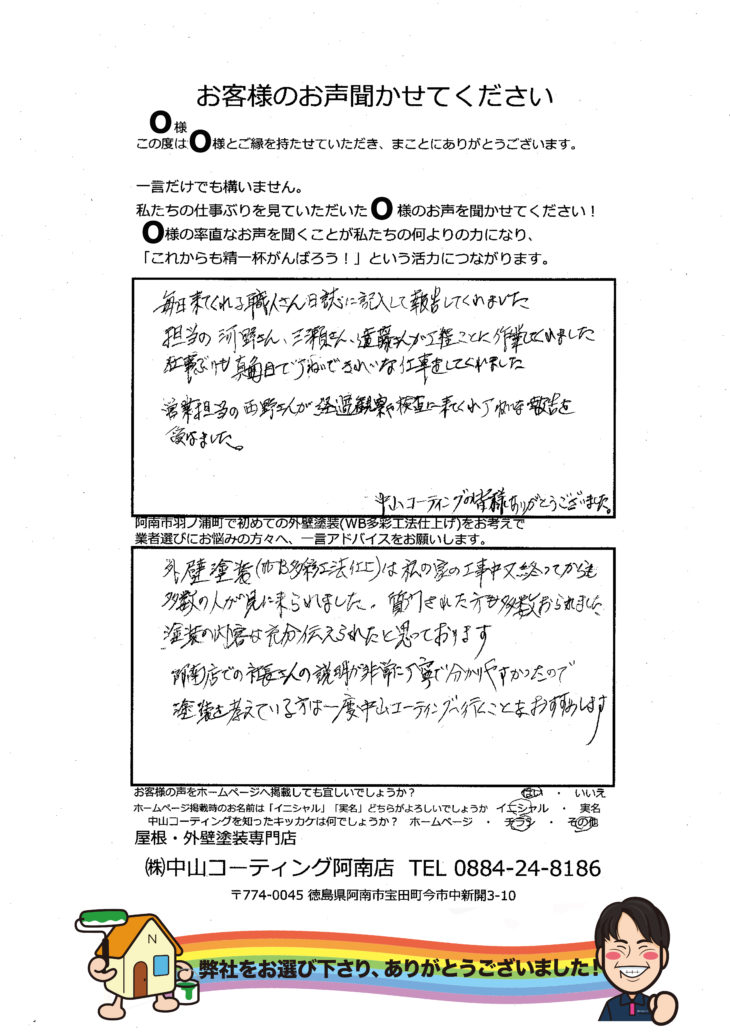 お客様のお声聞かせてください
O様
この度はO様とご縁を持たせていただき、まことにありがとうございます。
一言だけでも構いません。
私たちの仕事ぶりを見ていただいたO様のお声を聞かせてください！
O様の率直なお声を聞くことが私たちの何よりの力になり、
「これからも精一杯がんばろう！」という活力につながります。
毎日来てくれる職人さん日誌に記入して報告してくれました
担当の河野さん、三瀬さん、遠藤さんが工程ごとに作業してくれました
仕事ぶりも真面目で丁ねいできれいな仕事をしてくれました
営業担当の西野さんが経過観察や検査に来てくれ丁ねいな報告を
受ました。
中山コーティングの皆様ありがとうございました。
阿南市羽ノ浦町で初めての外壁塗装(WB多彩工法仕上げ)をお考えで
業者選びにお悩みの方々へ、一言アドバイスをお願いします。
外壁塗装(WB多彩工法仕上)は私の家の工事中又終ってからも
多数の人が見に来られました。質問された方も多数おられました
塗装の内容は充分伝えられたと思っております
阿南店での社長さんの説明が非常に丁寧で分かりやすかったので
塗装を考えている方は一度中山コーティングへ行くことをおすすめします
お客様の声をホームページへ掲載しても宜しいでしょうか？ はい ・ いいえ
ホームページ掲載時のお名前は「イニシャル」「実名」どちらがよろしいでしょうか イニシャル ・ 実名
中山コーティングを知ったキッカケは何でしょうか？ ホームページ ・ チラシ ・ その他
屋根・外壁塗装専門店
㈱中山コーティング阿南店 TEL 0884-24-8186
〒774-0045 徳島県阿南市宝田町今市中新開3-10
N
弊社をお選び下さり、ありがとうございました！